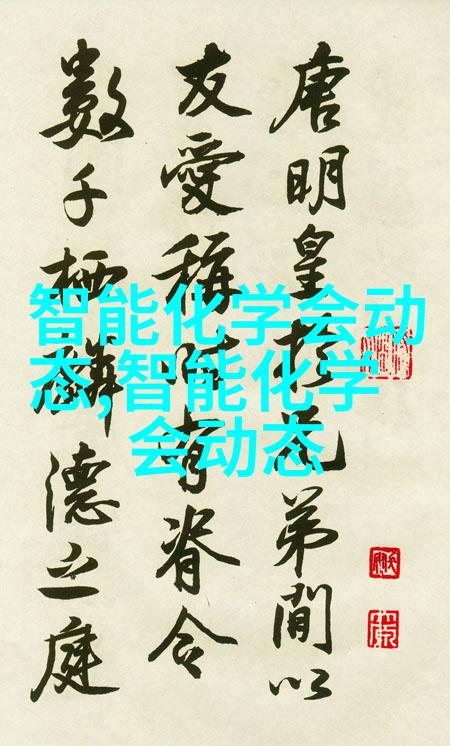 唐明皇於兄弟間以
友愛稱時有脊令
數千栖麟德之庭
智能化学会动
态,智能化学
会动态